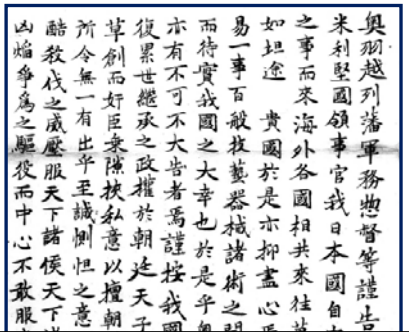 奥羽越列藩軍務惣督等謹告
米利堅國領事官我日本國自
之事而來海外各國相共來往
如坦途 貴國於是亦抑盡心焉
易一事百般技藝器械諸術之開
而待實我國之大幸也於是乎奥
亦有不可不大告者焉謹按我國
復累世繼承之政權於朝廷天子
草創而奸臣乗隙挾私意以擅朝
所令無一有出乎至誠惻怛之意
酷殺伐之威壓服天下諸侯天下
凶焔爭為之驅役而中心不敢服